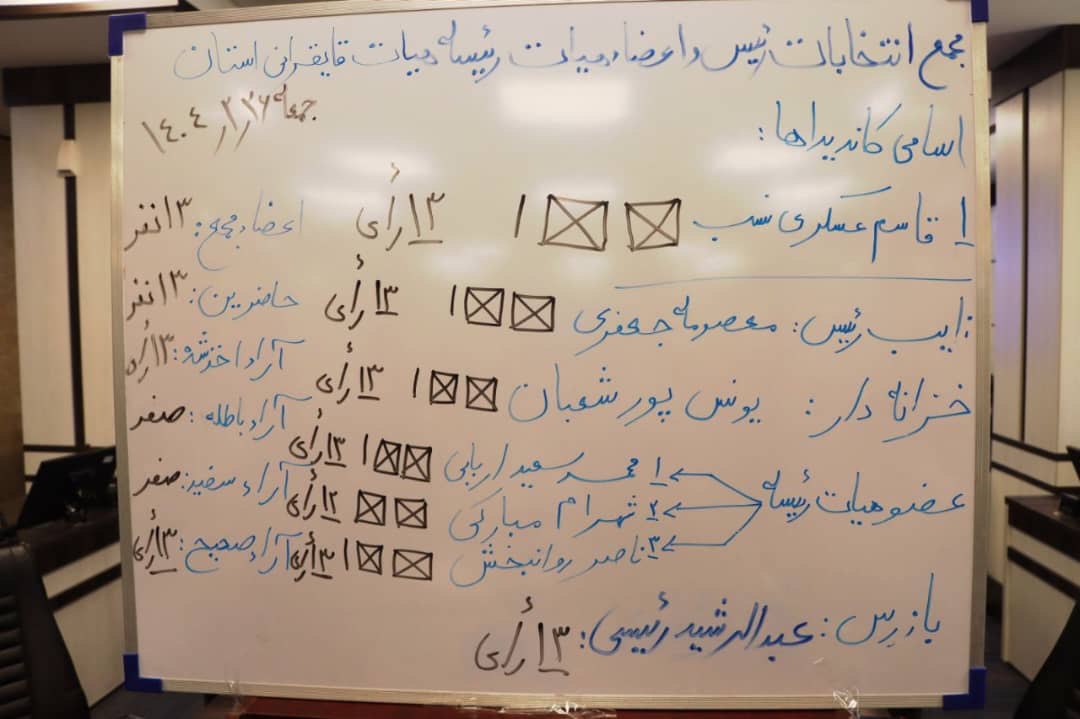 مجمع انتخابات رئیس و اعضاء هیات رئیسه هیات قایقرانی استان
جمعه ۱۴۰۴/۲/۲۶
اسامی کاندیداها:
۱ قاسم عسکری نسب ۱ ۱۳ رأی
اعضاء مجمع: ۱۳ نفر
نایب رئیس: معصومه جعفری ۱ ۱۳ رأی
حاضرین: ۱۳ نفر
خزانه دار: یونس پور شعبان ۱ ۱۳ رأی
آراء اخذ شده: ۱۳ رأی
آراء باطله: صفر
عضو هیات رئیسه
۱ محمد سعید اربابی ۱ ۱۳ رأی
۲ شهرام مبارکی ۱۲ رأی
آراء سفید: صفر
۳ ناصر روانبخش ۱ ۱۳ رأی
آراء صحیح: ۱۳ رأی
بازرس: عبدالرشید رئیسی: ۱۳ رأی